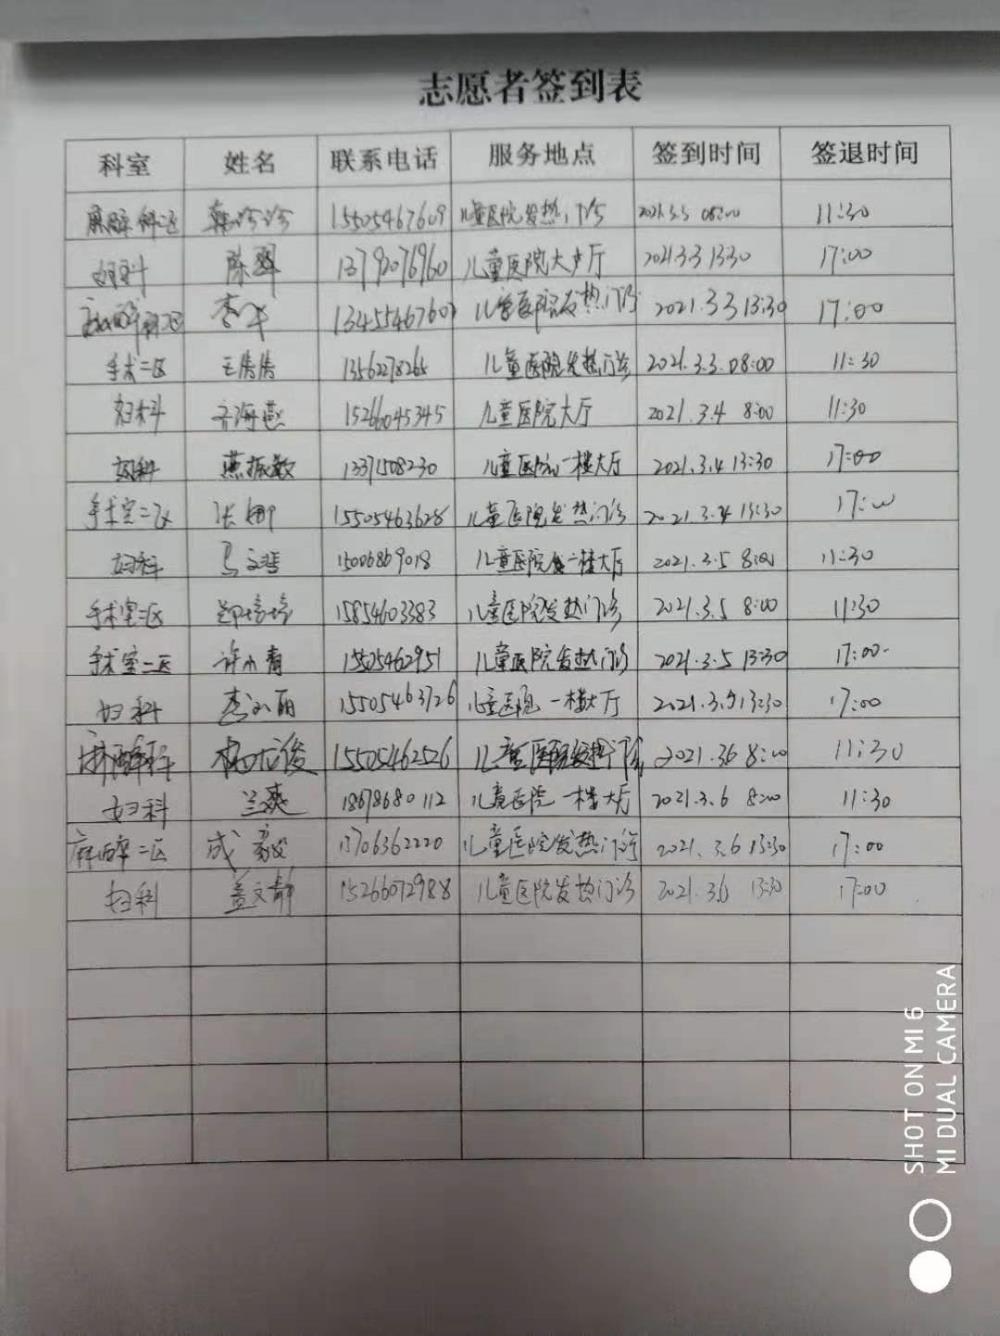 志愿者签到表
科室 姓名 联系电话 服务地点 签到时间 签退时间
麻醉科二区 韩沙沙 15505467609 儿童医院发热门诊 2021.3.3 08:00 11:30
妇科 陈翠 13792076960 儿童医院大户厅 2021.3.3 13:30 17:00
麻醉科二区 李平 13455467607 儿童医院发热门诊 2021.3.3 13:30 17:00
手术二区 王倩倩 儿童医院发热门诊 2021.3.3. 08:00 11:30
妇科 齐海燕 15266045345 儿童医院大厅 2021.3.4 8:00 11:30
妇科 燕振敏 13371508230 儿童医院一楼大厅 2021.3.4 13:30 17:00
手术室二区 张娜 15505463628 儿童医院发热门诊 2021.3.4 13:30 17:00
妇科 马文哲 15006869018 儿童医院 一楼大厅 2021.3.5 8:00 11:30
手术室二区 郑培培 15854603383 儿童医院发热门诊 2021.3.5 8:00 11:30
手术室二区 许小青 15505462951 儿童医院发热门诊 2021.3.5 13:30 17:00
妇科 李 丽 15505463726 儿童医院一楼大厅 2021.3.5 13:30 17:00
麻醉科 杨 俊 15505462526 儿童医院发热门诊 2021.3.6 8:00 11:30
妇科 兰爽 18678680112 儿童医院一楼大厅 2021.3.6 8:00 11:30
麻醉二区 成毅 13706362220 儿童医院发热门诊 2021.3.6 13:30 17:00
妇科 盖文静 15266072988 儿童医院发热门诊 2021.3.6 13:30 17:00
SHOT ON MI 6
MI DUAL CAMERA